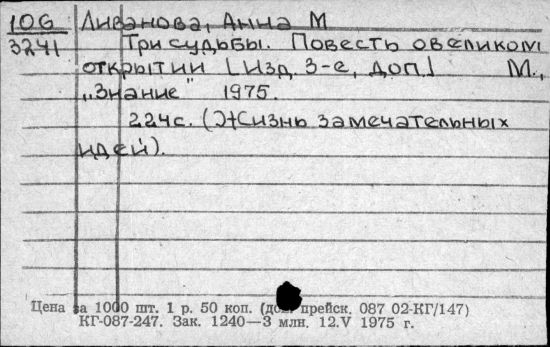 10G Ливанова, Анна М
3241 Три судьбы. Повесть о великом
открытии [Изд. 3-е, доп.] М.,
„Знание" 1975.
224с. (Жизнь замечательных
идей).
Цена за 1000 шт. 1 р. 50 коп. (доп. прейск. 087 02-КГ/147)
КГ-087-247. Зак. 1240—3 млн. 12.V 1975 г.